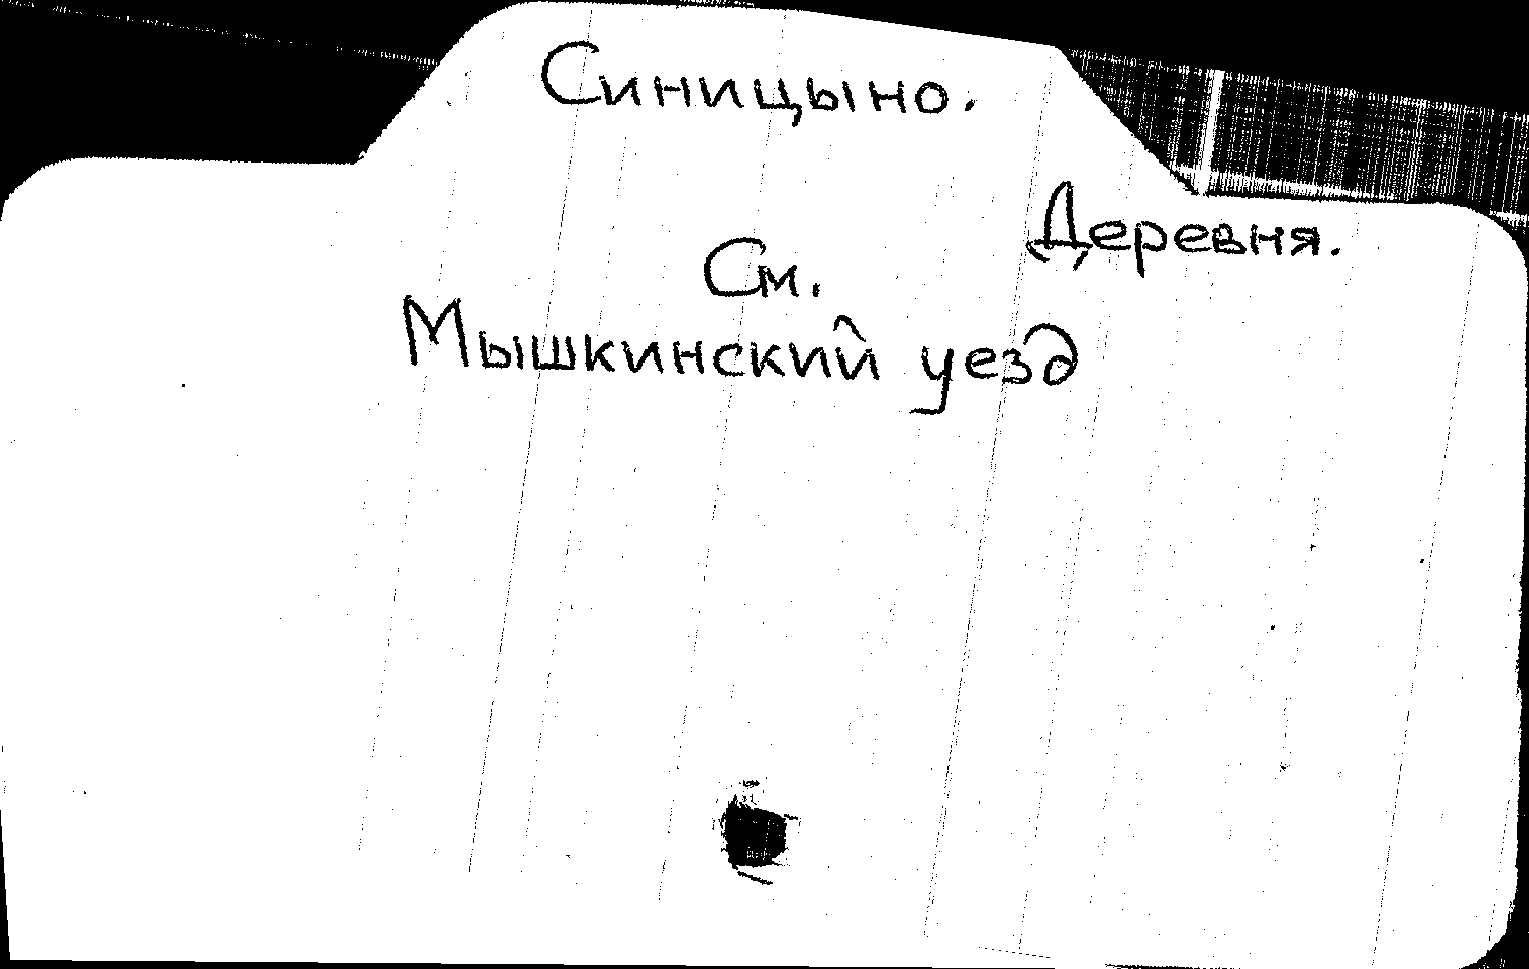 Синицыно.
Деревня.
См.
Мышкинский уезд